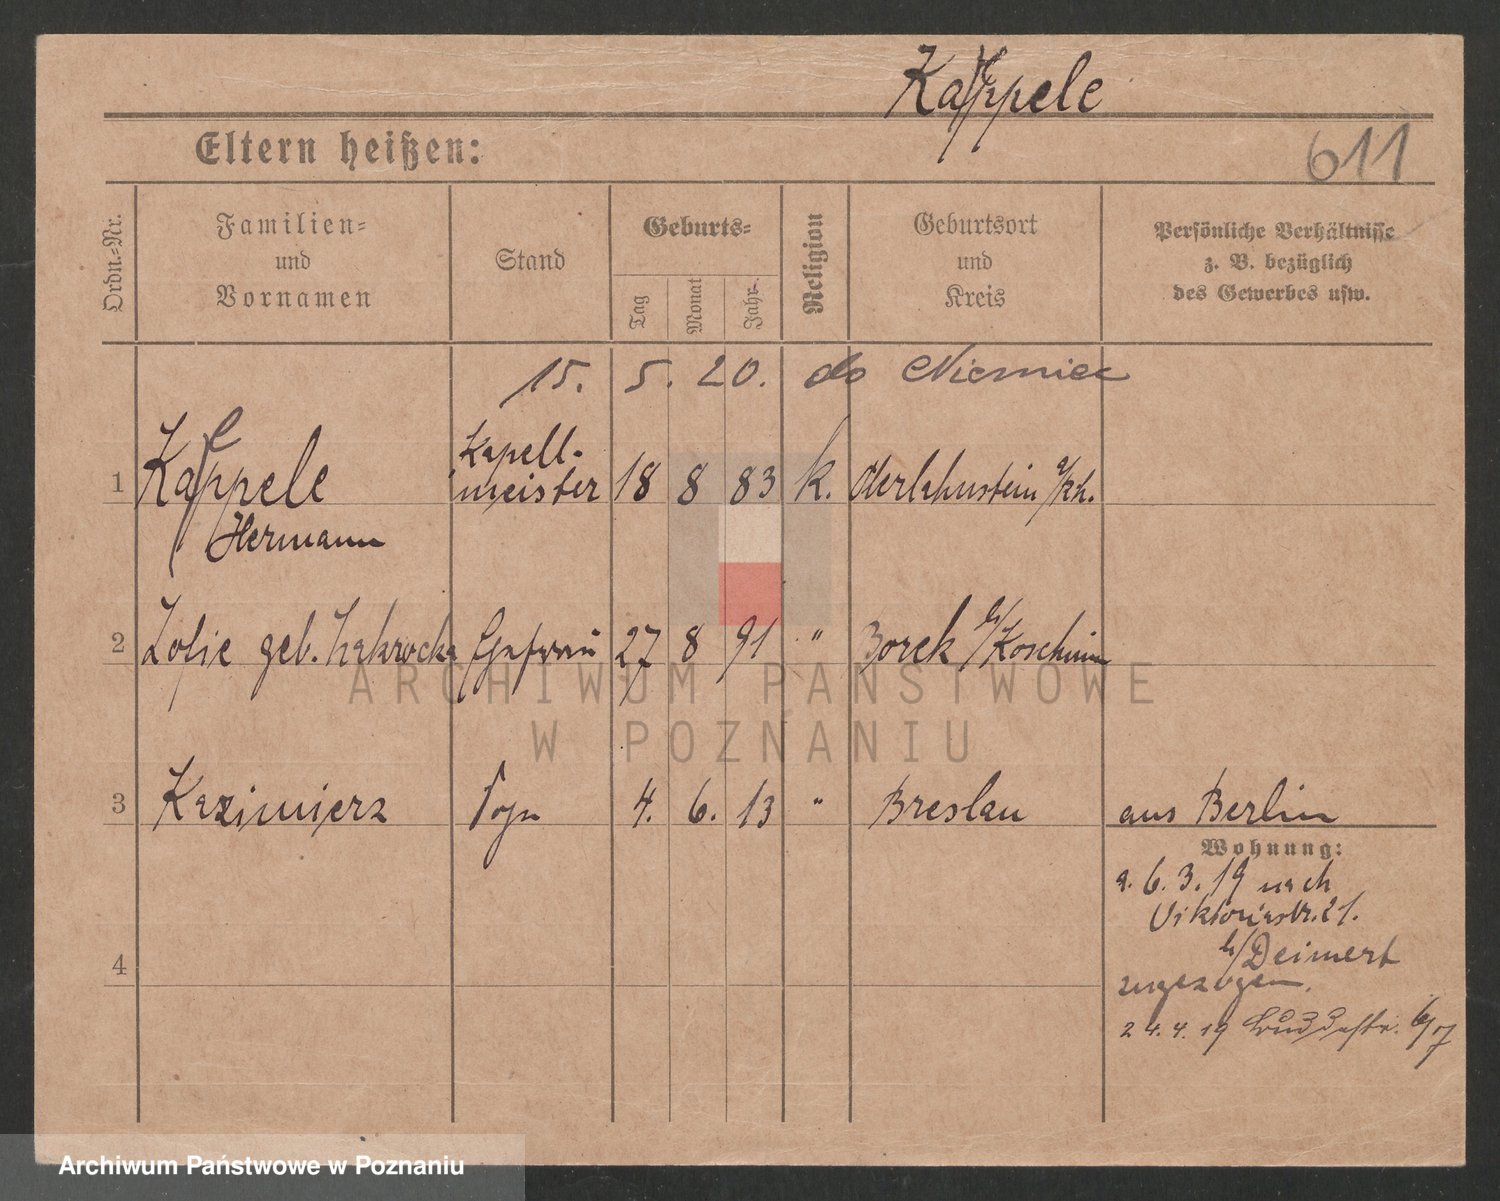 Kappele
Eltern heißen:
611
Ordn.-Nr.
Familien-
und
Vornamen
Stand
Geburts-
Tag
Monat
Jahr
Religion
Geburtsort
und
Kreis
Persönliche Verhältnisse
z. B. bezüglich
des Gewerbes usw.
15. 5. 20. do Niemiec
1 Kappele Kapell-
meister 18 8 83 k. a/Rh.
Hermann
2 geb. Ehefrau 27 8 91 " Borek b/Koschmin
ARCHIWUM PAŃSTWOWE
W POZNANIU
3 Kazimierz Sohn 4. 6. 13 " Breslau aus Berlin
Wohnung:
a. 6. 3. 19 nach
Viktoriastr. 21.
b/Deimert
zugezogen.
4
24. 4. 19
Archiwum Państwowe w Poznaniu